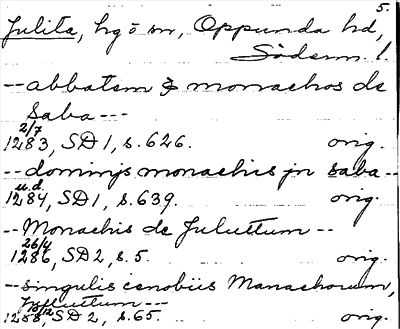 5.
Julita, hg o sn, Oppunda hd,
Söderm l.
--abbatem & monachos de
Saba---
2/7
1283, SD1, s.626. orig.
--dominis monachis jn saba--
u.d.
1284, SD1, s.639. orig.
--Monachis de Juluttum--
26/4
1286, SD2, s.5. orig.
--singulis cenobiis Manachorum,
---
10/12
1288, SD2, s.65. orig.